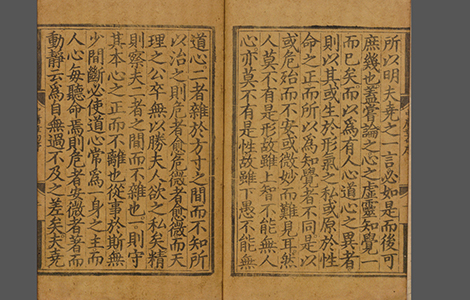 所以明夫堯之一言必如是而後可
庶幾也蓋嘗論之心之虛靈知覺一
而已矣而以爲有人心道心之異者
則以其或生於形氣之私或原於性
命之正而所以爲知覺者不同是以
或危殆而不安或微妙而難見耳然
人莫不有是形故雖上智不能無人
心亦莫不有是性故雖下愚不能無
道心二者雜於方寸之間而不知所
以治之則危者愈危微者愈微而天
理之公卒無以勝夫人欲之私矣精
則察夫二者之間而不雜也一則守
其本心之正而不離也從事於斯無
少間斷必使道心常爲一身之主而
人心每聽命焉則危者安微者著而
動靜云爲自無過不及之差矣夫堯